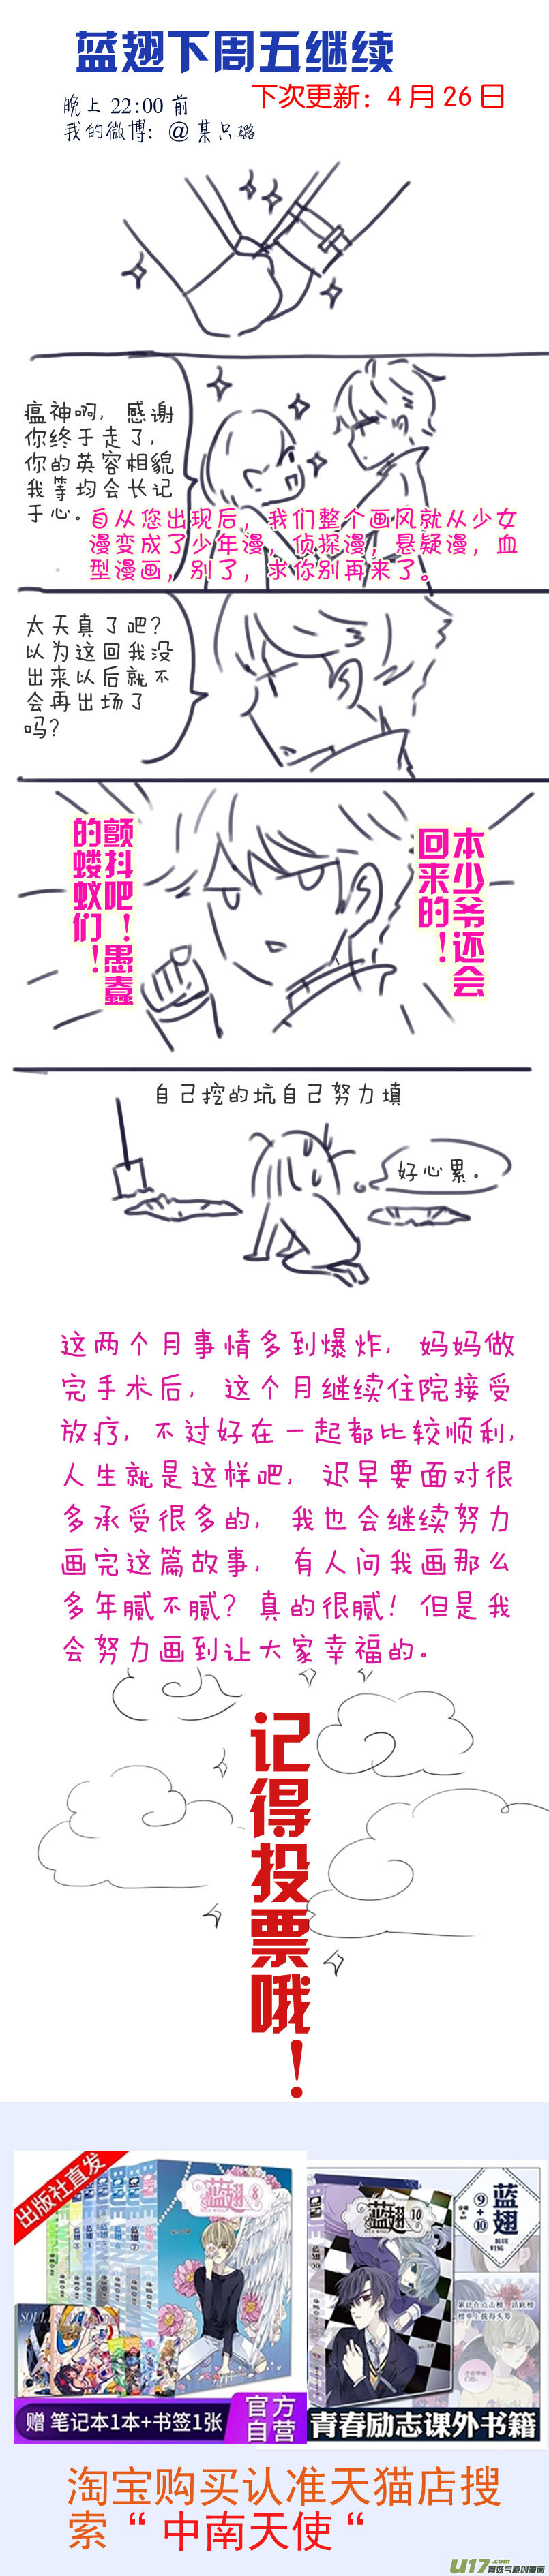 蓝翅下周五继续
下次更新：4月26日
晚上 22:00 前
我的微博：@某只璐
瘟神啊，感谢
你终于走了，
你的英容相貌
我等均会长记
于心。
自从您出现后，我们整个画风就从少女
漫变成了少年漫，侦探漫，悬疑漫，血
型漫画，别了，求你别再来了。
太天真了吧？
以为这回我没
出来以后就不
会再出场了
吗？
本少爷还会
回来的！
颤抖吧！愚蠢
的蝼蚁们！
自己挖的坑自己努力填
好心累。
这两个月事情多到爆炸，妈妈做
完手术后，这个月继续住院接受
放疗，不过好在一起都比较顺利，
人生就是这样吧，迟早要面对很
多承受很多的，我也会继续努力
画完这篇故事，有人问我画那么
多年腻不腻？真的很腻！但是我
会努力画到让大家幸福的。
记得投票哦！
出版社直发
蓝翅 8
赠 笔记本1本+书签1张
官方
自营
蓝翅 10
⑨+⑩
蓝翅
BLUE
WING
累计在点击榜、活跃榜
榜单上拔得头筹
青春励志课外书籍
淘宝购买认准天猫店搜
索“中南天使“
U17.com
有妖气原创漫画